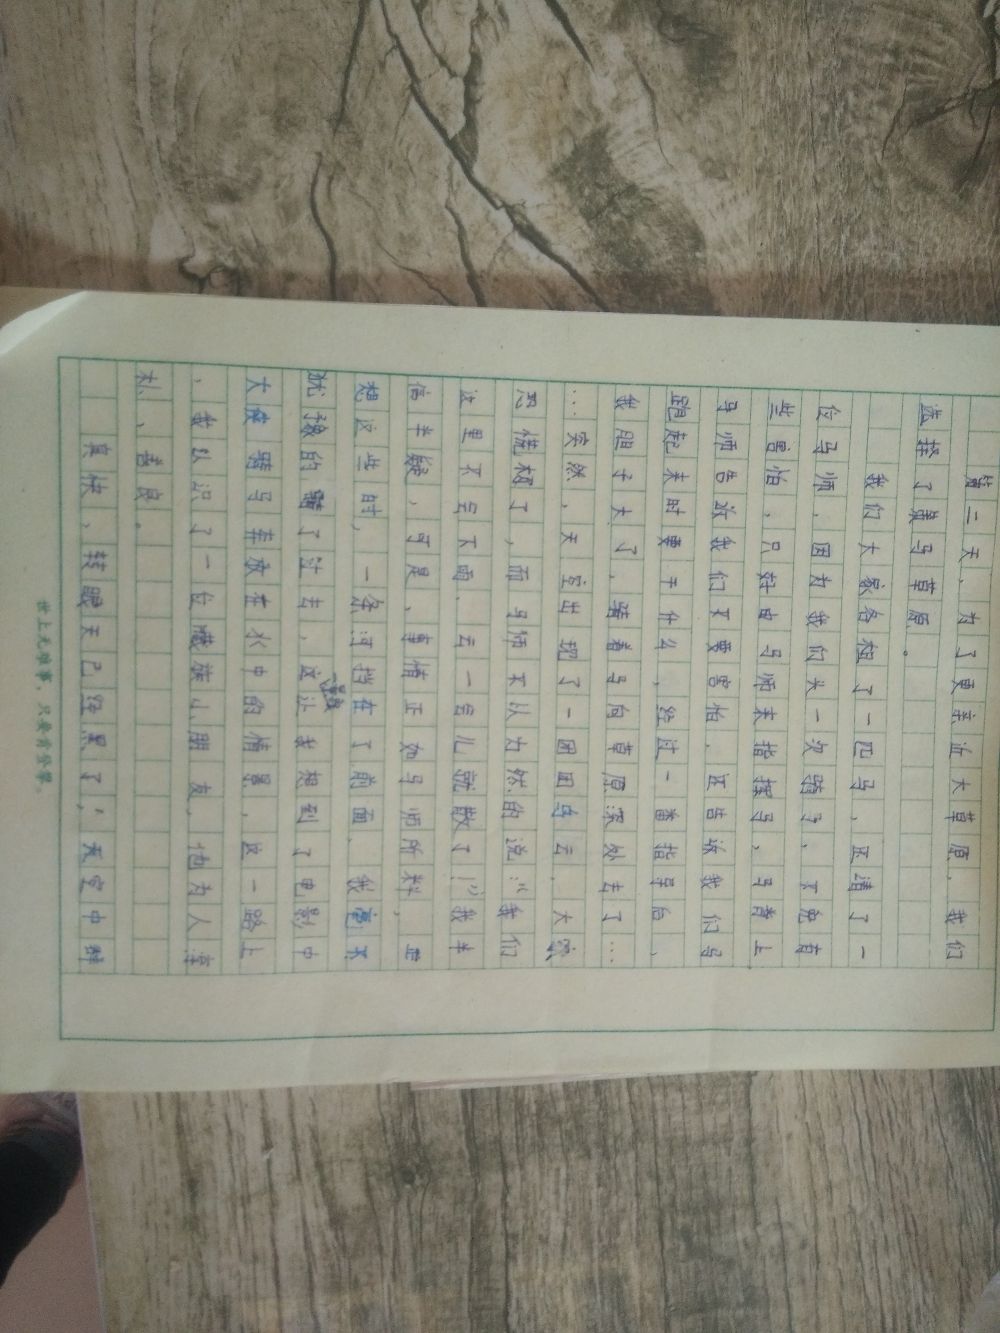 第二天，为了更亲近大草原，我们
选择了骑马草原。
我们大家各租了一匹马，还请了一
位马师，因为我们头一次骑马，不免有
些害怕，只好由马师来指挥马，马背上
马师告诉我们不要害怕，还告诉我们马
跑起来时要干什么，经过一番指导后，
我胆子大了，骑着马向草原深处去了…
…突然，天空出现了一团团乌云，大家
恐慌极了，而马师不以为然的说：“我们
这里不至下雨，云一会儿就散了！”我半
信半疑，可是，事情正如马师所料，正
想这些时，一条河挡在了前面，我毫不
犹豫的骑了过去，这一幕让我想到了电影中
大侠骑马奔放在水中的情景，这一路上
，我认识了一位藏族小朋友，他为人淳
朴、善良。
真快，转眼天已经黑了，天空中群
世上无难事，只要肯登攀。